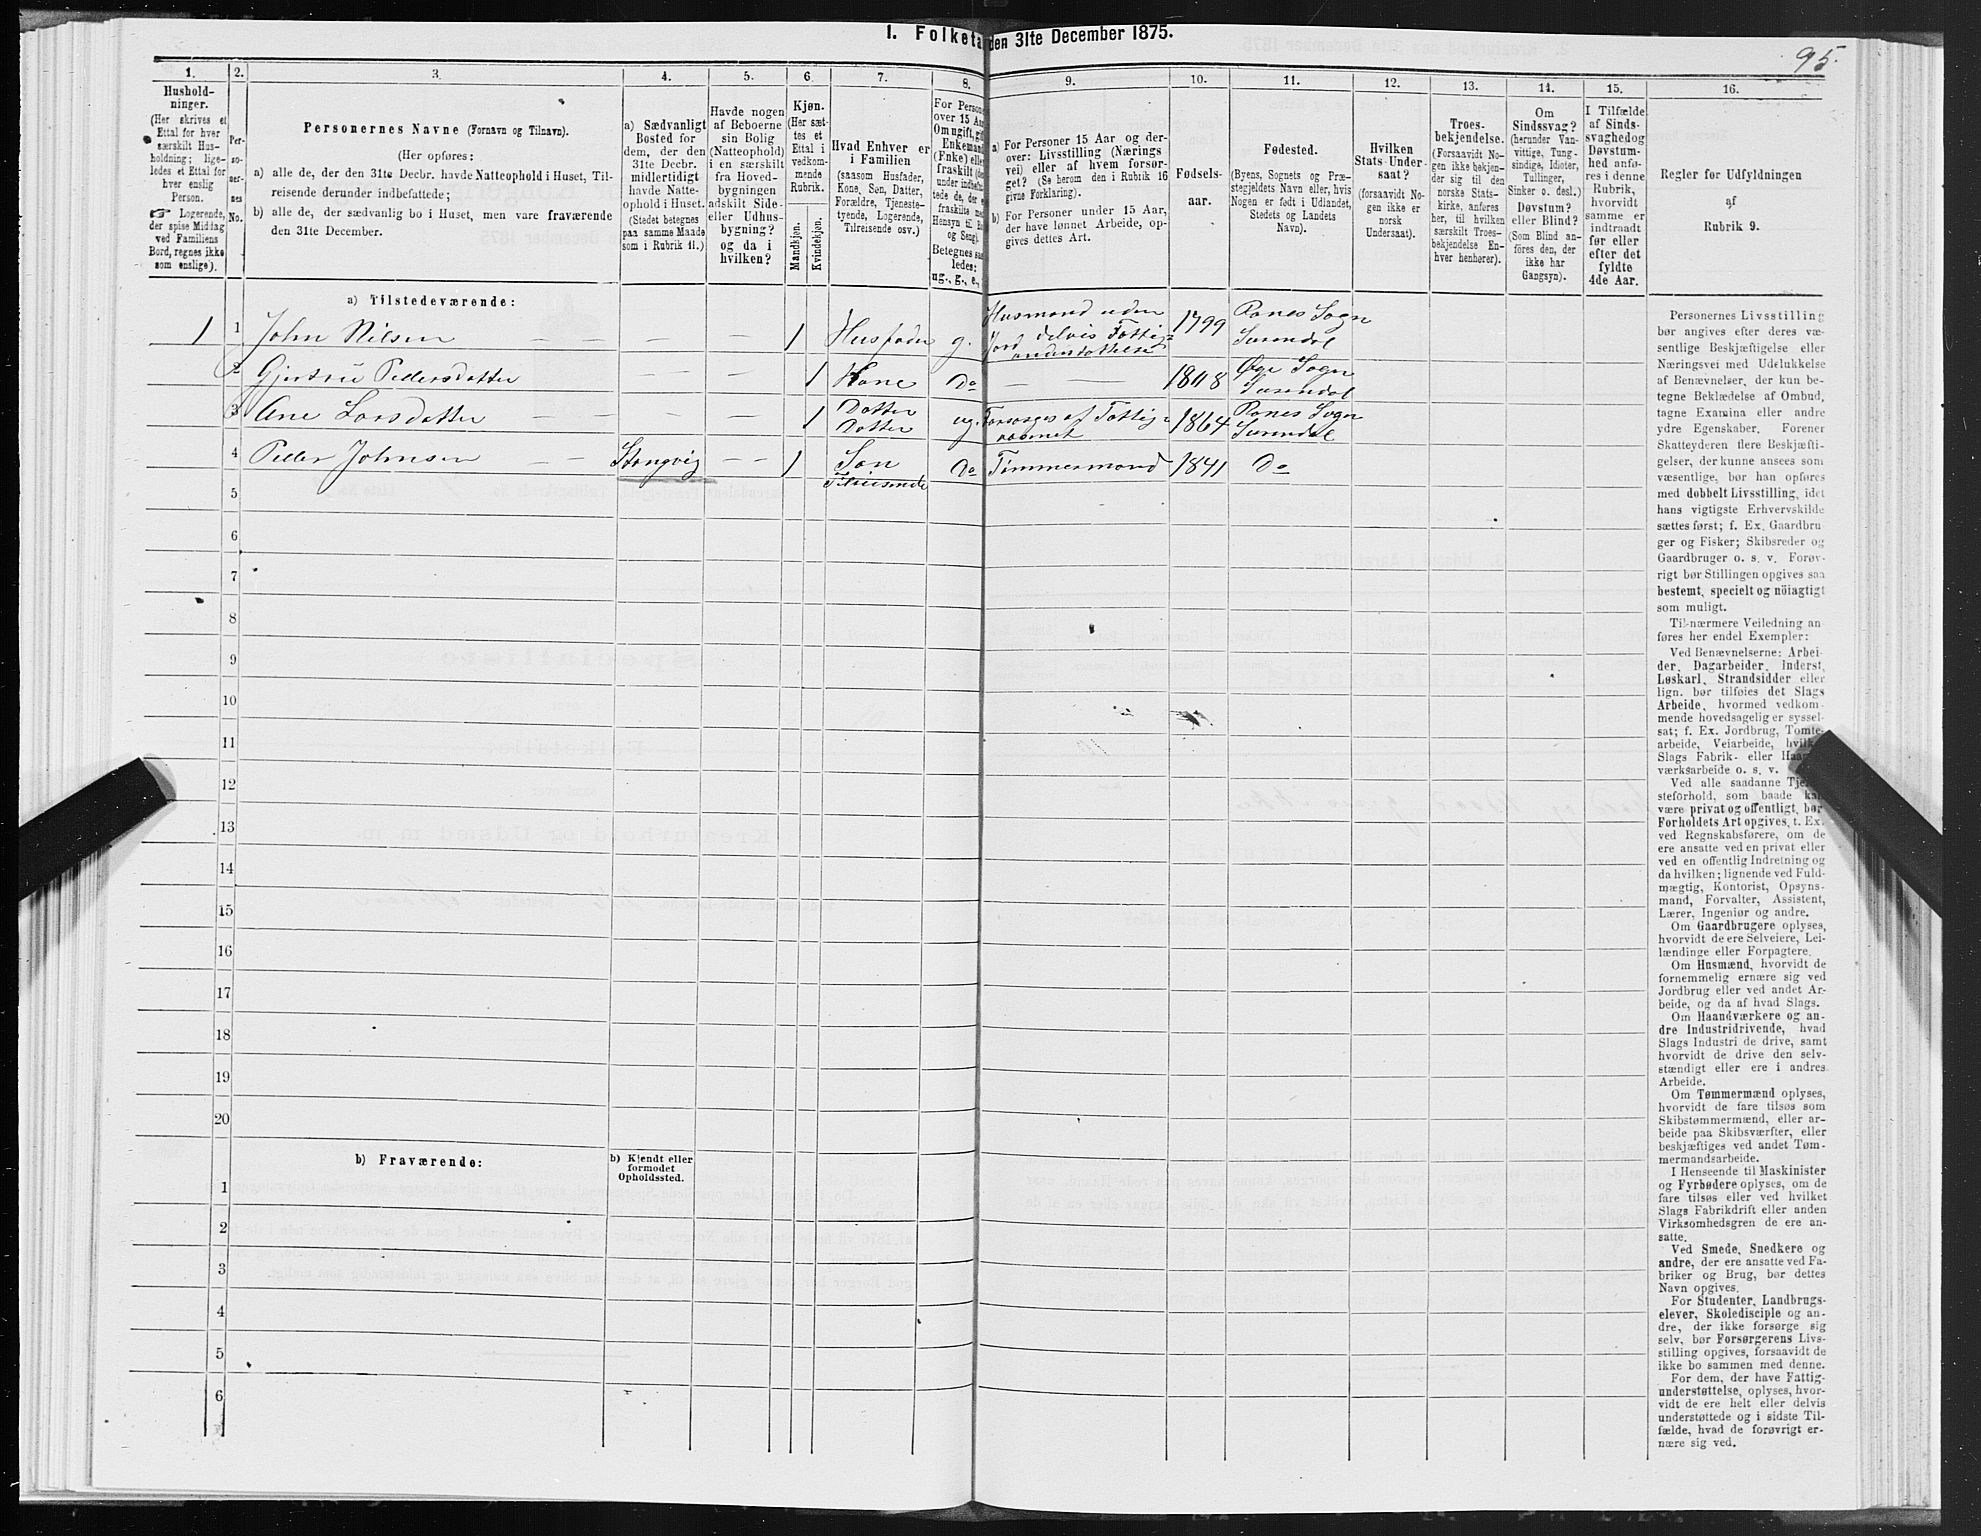 I. Folketæ den 31te December 1875.
95.
1.
Hushold-
ninger.
(Her skrives et
Ettal for hver
særskilt Hus-
holdning; lige-
ledes et Ettal for
hver enslig
Person.
☞ Logerende,
der spise Middag
ved Familiens
Bord, regnes ikke
som enslige).
2.
Per-
so-
ner-
nes
No.
3.
Personernes Navne (Fornavn og Tilnavn).
(Her opføres:
a) alle de, der den 31te Decbr. havde Natteophold i Huset, Til-
reisende derunder indbefattede;
b) alle de, der sædvanlig bo i Huset, men vare fraværende
den 31te December.
4.
a) Sædvanligt
Bosted for
dem, der den
31te Decbr.
midlertidigt
havde Natte-
ophold i Huset.
(Stedet betegnes
paa samme Maade
som i Rubrik 11.)
5.
Havde nogen
af Beboerne
sin Bolig
(Natteophold)
i en særskilt
fra Hoved-
bygningen
adskilt Side-
eller Udhus-
bygning?
og da i
hvilken?
6.
Kjøn.
(Her sæt-
tes et
Ettal i
vedkom-
mende
Rubrik.
Mandkjøn.
Kvindekjøn.
7.
Hvad Enhver er
i Familien
(saasom Husfader,
Kone, Søn, Datter,
Forældre, Tjeneste-
tyende, Logerende,
Tilreisende osv.)
8.
For Person
over 15 Aa
Om ugift, gif
Enkemand
(Enke) elle
fraskilt (de
under indbefat
tede de, der e
fraskilte me
Hensyn til Bo
og Seng).
Betegnes saa
ledes:
ug., g., e.,
9.
a) For Personer 15 Aar og der-
over: Livsstilling (Nærings
vei) eller af hvem forsør-
get? (Se herom den i Rubrik 16
givne Forklaring).
b) For Personer under 15 Aar,
der have lønnet Arbeide, op-
gives dettes Art.
10.
Fødsels-
aar.
11.
Fødested.
(Byens, Sognets og Præ-
stegjeldets Navn eller, hvis
Nogen er født i Udlandet,
Stedets og Landets
Navn).
12.
Hvilken
Stats Under-
saat?
(forsaavidt No-
gen ikke er
norsk
Undersaat).
13.
Troes-
bekjendelse.
(Forsaavidt No-
gen ikke bekjen-
der sig til den
norske Stats-
kirke, anføres
her, til hvilken
særskilt Troes-
bekjendelse En-
hver henhører).
14.
Om
Sindssvag?
(herunder Van-
vittige, Tung-
sindige, Idioter,
Tullinger,
Sinker o. desl.)
Døvstum?
eller Blind?
(Som Blind an-
føres den, der
ikke har
Gangsyn).
15.
I Tilfælde
af Sinds-
svaghed og
Døvstum-
hed anfø-
res i denne
Rubrik,
hvorvidt
samme er
indtraadt
før eller
efter det
fyldte
4de Aar.
16.
Regler for Udfyldningen
af
Rubrik 9.
a) Tilstedeværende:
1 1 John Nilsen — — — — 1 Husfader g. Husmand uden Jord delvis Fattig= understøttelse 1799 Ranes Sogn Surendal
2 Gjertrue Pedersdatter — — 1 Kone Do — — 1808 Øye Sogn Surendal
3 Ane Larsdatter — — — — 1 Datter Datter ug. Forsørges af Fattig= væsenet 1864 Ranes Sogn Surendal
4 Peder Johnsen — — Stangvig — — 1 Søn Tilreisende Do Tømmermand 1841 Do
5
6
7
8
9
10
11
12
13
14
15
16
17
18
19
20
b) Fraværende:
b) Kjendt eller
formodet
Opholdssted.
1
2
3
4
5
6
Personernes Livsstilling
bør angives efter deres væ-
sentlige Beskjæftigelse eller
Næringsvei med Udelukkelse
af Benævnelser, der kun be-
tegne Beklædelse af Ombud,
tagne Examina eller andre
ydre Egenskaber. Forener
Skatteyderen flere Beskjæfti-
gelser, der kunne ansees som
væsentlige, bør han opføres
med dobbelt Livsstilling, idet
hans vigtigste Erhvervskilde
sættes først; f. Ex. Gaardbru-
ger og Fisker; Skibsreder og
Gaardbruger o. s. v. Forøv-
rigt bør Stillingen opgives saa
bestemt, specielt og nöiagtigt
som muligt.
Til nærmere Veiledning an
føres her endel Exempler:
Ved Benævnelserne: Arbei-
der, Dagarbeider, Inderst,
Løskarl, Strandsidder eller
lign. bør tilføies det Slags
Arbeide, hvormed vedkom-
mende hovedsagelig er syssel-
sat; f. Ex. Jordbrug, Tomte-
arbeide, Veiarbeide, hvilket
Slags Fabrik- eller Haand-
værksarbeide o. s. v.
Ved alle saadanne Tjene-
steforhold, som baade kan
være privat og offentligt, bør
Forholdets Art opgives, t. Ex.
ved Regnskabsførere, om de
ere ansatte ved en privat eller
ved en offentlig Indretning og
da hvilken; lignende ved Fuld-
mægtig, Kontorist, Opsyns-
mand, Forvalter, Assistent,
Lærer, Ingeniør og andre.
Om Gaardbrugere oplyses,
hvorvidt de ere Selveiere, Lei-
lændinge eller Forpagtere.
Om Husmænd, hvorvidt de
fornemmelig ernære sig ved
Jordbrug eller ved andet Ar-
beide, og da af hvad Slags.
Om Haandværkere og an-
dre Industridrivende, hvad
Slags Industri de drive, samt
hvorvidt de drive den selv-
stændigt eller ere i andres
Arbeide.
Om Tømmermænd oplyses,
hvorvidt de fare tilsøs som
Skibstømmermænd, eller ar-
beide paa Skibsværfter, eller
beskjæftiges ved andet Tøm-
mermandsarbeide.
I Henseende til Maskinister
og Fyrbødere oplyses, om de
fare tilsøs eller ved hvilket
Slags Fabrikdrift eller anden
Virksomhedsgren de ere an-
satte.
Ved Smede, Snedkere og
andre, der ere ansatte ved Fa-
briker og Brug, bør dettes
Navn opgives.
For Studenter, Landbrugs-
elever, Skoledisciple og an-
dre, der ikke forsørge sig
selv, bør Forsørgerens Livs-
stilling opgives, forsaavidt de
ikke bo sammen med denne.
For dem, der have Fattig-
understøttelse, oplyses, hvor-
vidt de ere helt eller delvis
understøttede og i sidste Til-
fælde, hvad de forøvrigt er-
nære sig ved.